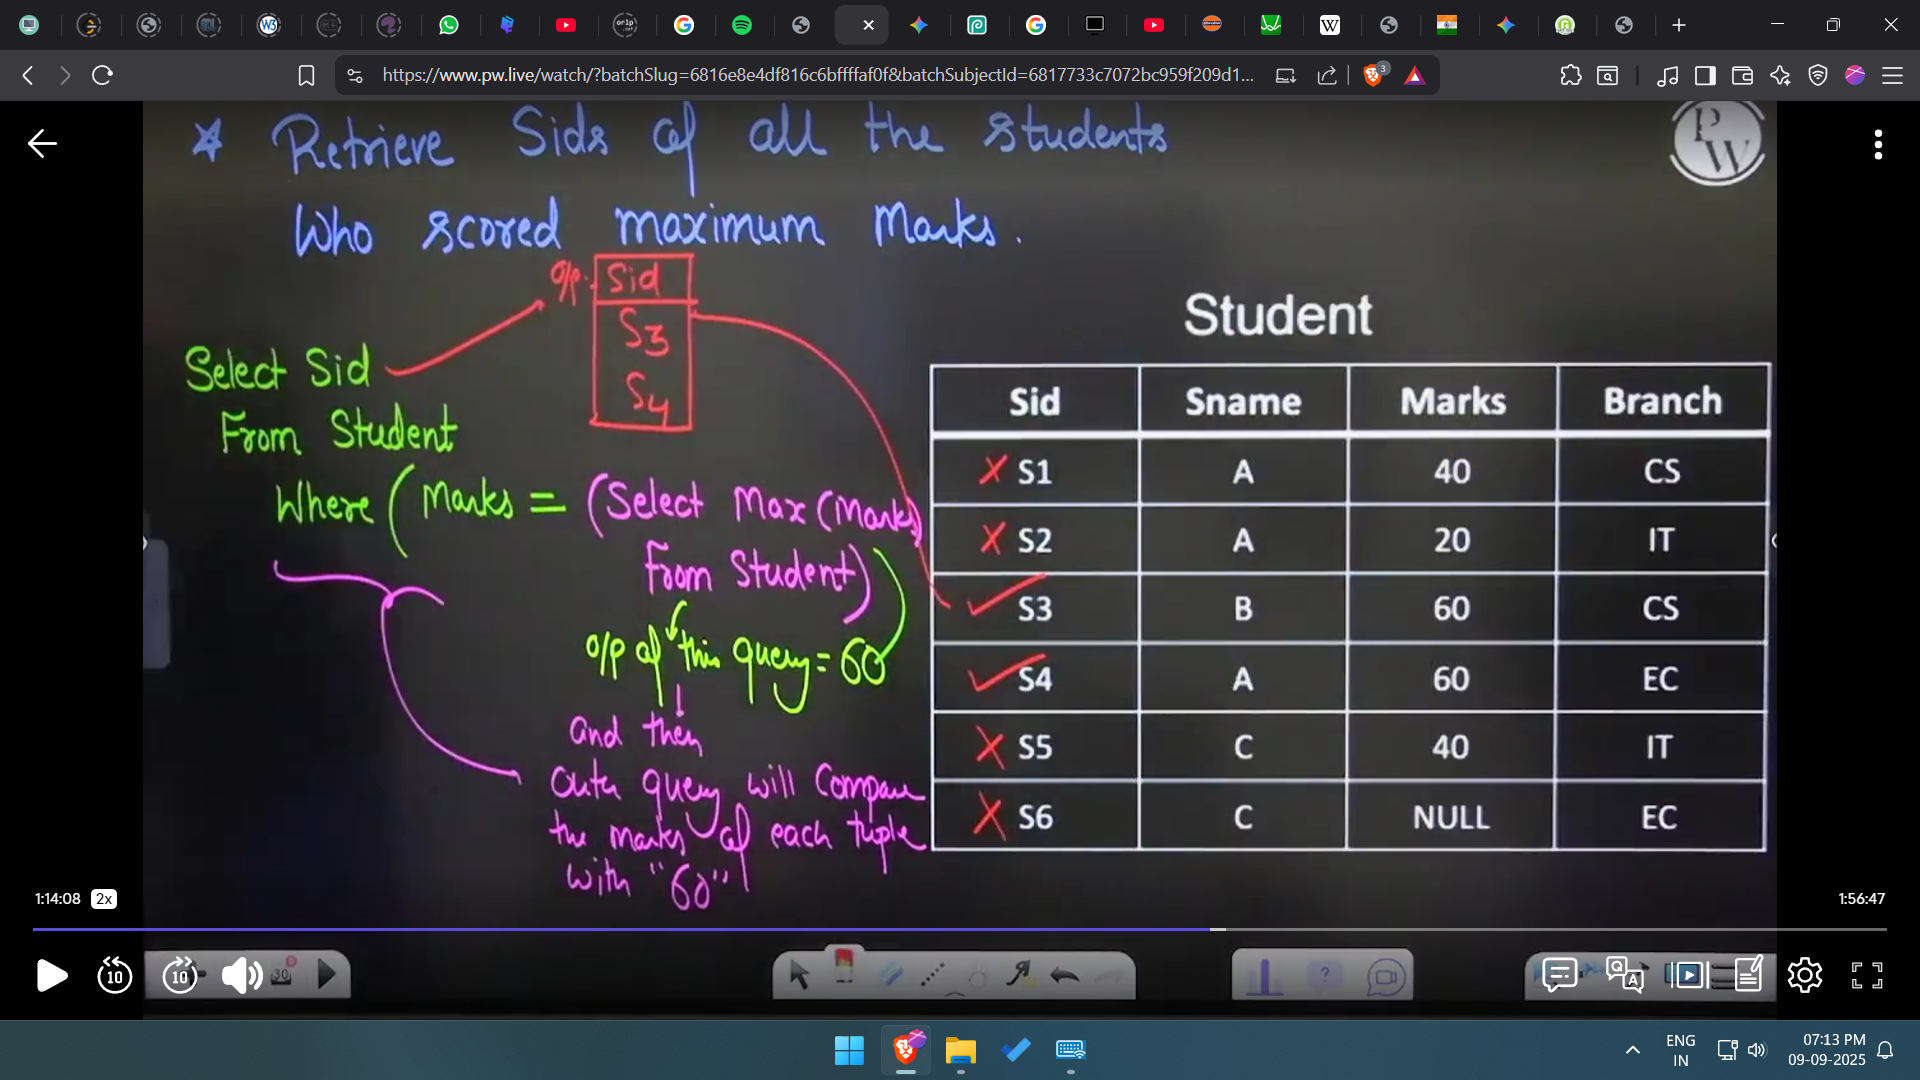 https://www.pw.live/watch/?batchSlug=6816e8e4df816c6bffffaf0f&batchSubjectId=6817733c7072bc959f209d1...
3
* Retrieve Sids of all the students
Who scored maximum Marks.
PW
o/p:
Sid
S3
S4
Select Sid
From Student
Where (Marks = (Select Max(Marks)
From Student)
o/p of this query = 60
and then
outer query will compare
the marks of each tuple
with "60"
Student
Sid Sname Marks Branch
✗ S1 A 40 CS
✗ S2 A 20 IT
✓ S3 B 60 CS
✓ S4 A 60 EC
✗ S5 C 40 IT
✗ S6 C NULL EC
1:14:08 2x 1:56:47
10 10 30
ENG
IN
07:13 PM
09-09-2025